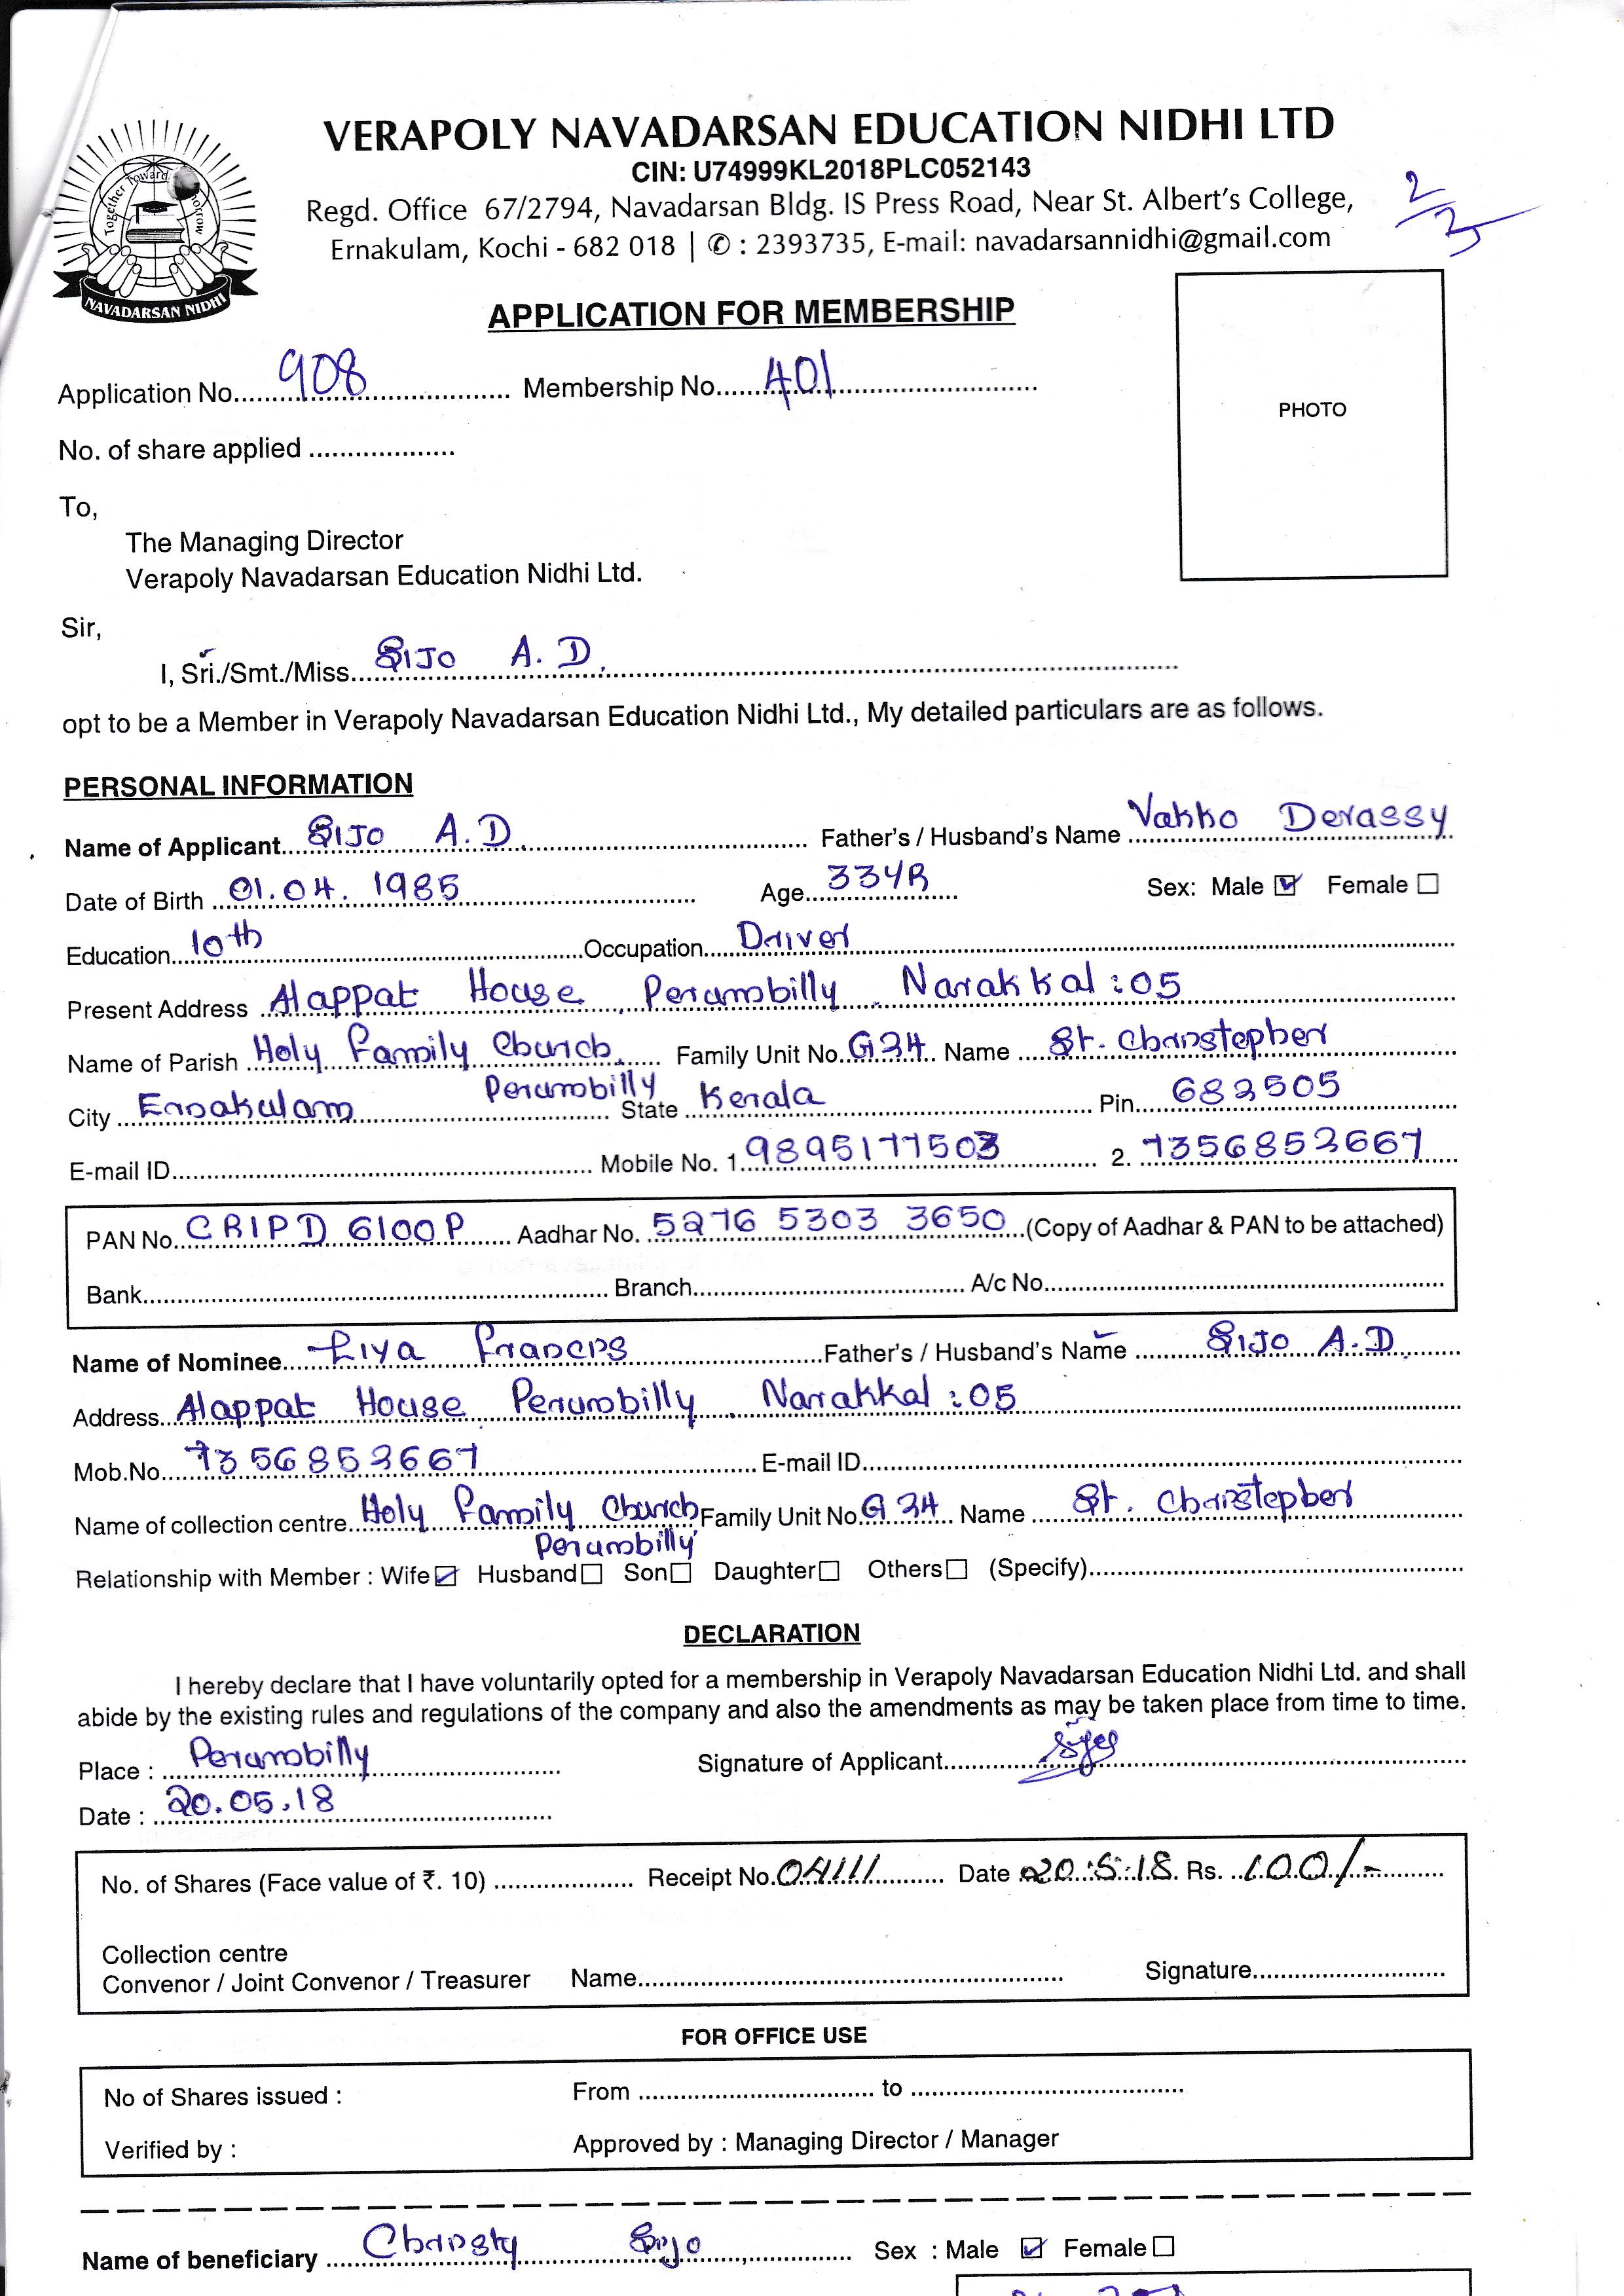 VERAPOLY NAVADARSAN EDUCATION NIDHI LTD
CIN: U74999KL2018PLC052143
Regd. Office 67/2794, Navadarsan Bldg. IS Press Road, Near St. Albert's College,
Ernakulam, Kochi - 682 018 | ✆ : 2393735, E-mail: navadarsannidhi@gmail.com
2/3
Together Toward
NAVADARSAN NIDHI
APPLICATION FOR MEMBERSHIP
Application No. 908 Membership No. 401
PHOTO
No. of share applied
To,
The Managing Director
Verapoly Navadarsan Education Nidhi Ltd.
Sir,
I, Sri./Smt./Miss. SIJO A. D.
opt to be a Member in Verapoly Navadarsan Education Nidhi Ltd., My detailed particulars are as follows.
PERSONAL INFORMATION
Name of Applicant SIJO A.D. Father's / Husband's Name Vakko Devassy
Date of Birth 01.04.1985 Age 33YR Sex: Male ☑ Female ☐
Education 10th Occupation Driver
Present Address Alappat House, Perumbilly, Narakkal : 05
Name of Parish Holy Family Church, Family Unit No. G34 Name St. Christopher
Perumbilly
City Ernakulam State Kerala Pin 682505
E-mail ID Mobile No. 1. 9895177503 2. 7356852667
PAN No. CRIPD 6100P Aadhar No. 5276 5303 3650 (Copy of Aadhar & PAN to be attached)
Bank Branch A/c No.
Name of Nominee Liya Francis Father's / Husband's Name SIJO A.D.
Address Alappat House, Perumbilly, Narakkal : 05
Mob.No. 7356852667 E-mail ID
Name of collection centre Holy Family Church Family Unit No. G 34 Name St. Christopher
Perumbilly
Relationship with Member : Wife ☑ Husband ☐ Son ☐ Daughter ☐ Others ☐ (Specify)
DECLARATION
I hereby declare that I have voluntarily opted for a membership in Verapoly Navadarsan Education Nidhi Ltd. and shall
abide by the existing rules and regulations of the company and also the amendments as may be taken place from time to time.
Place : Perumbilly Signature of Applicant
Date : 20.05.18
No. of Shares (Face value of ₹. 10) Receipt No. 04111 Date 20.5.18 Rs. 100/-
Collection centre
Convenor / Joint Convenor / Treasurer Name Signature
FOR OFFICE USE
No of Shares issued : From to
Verified by : Approved by : Managing Director / Manager
Name of beneficiary Christy Sijo Sex : Male ☑ Female ☐